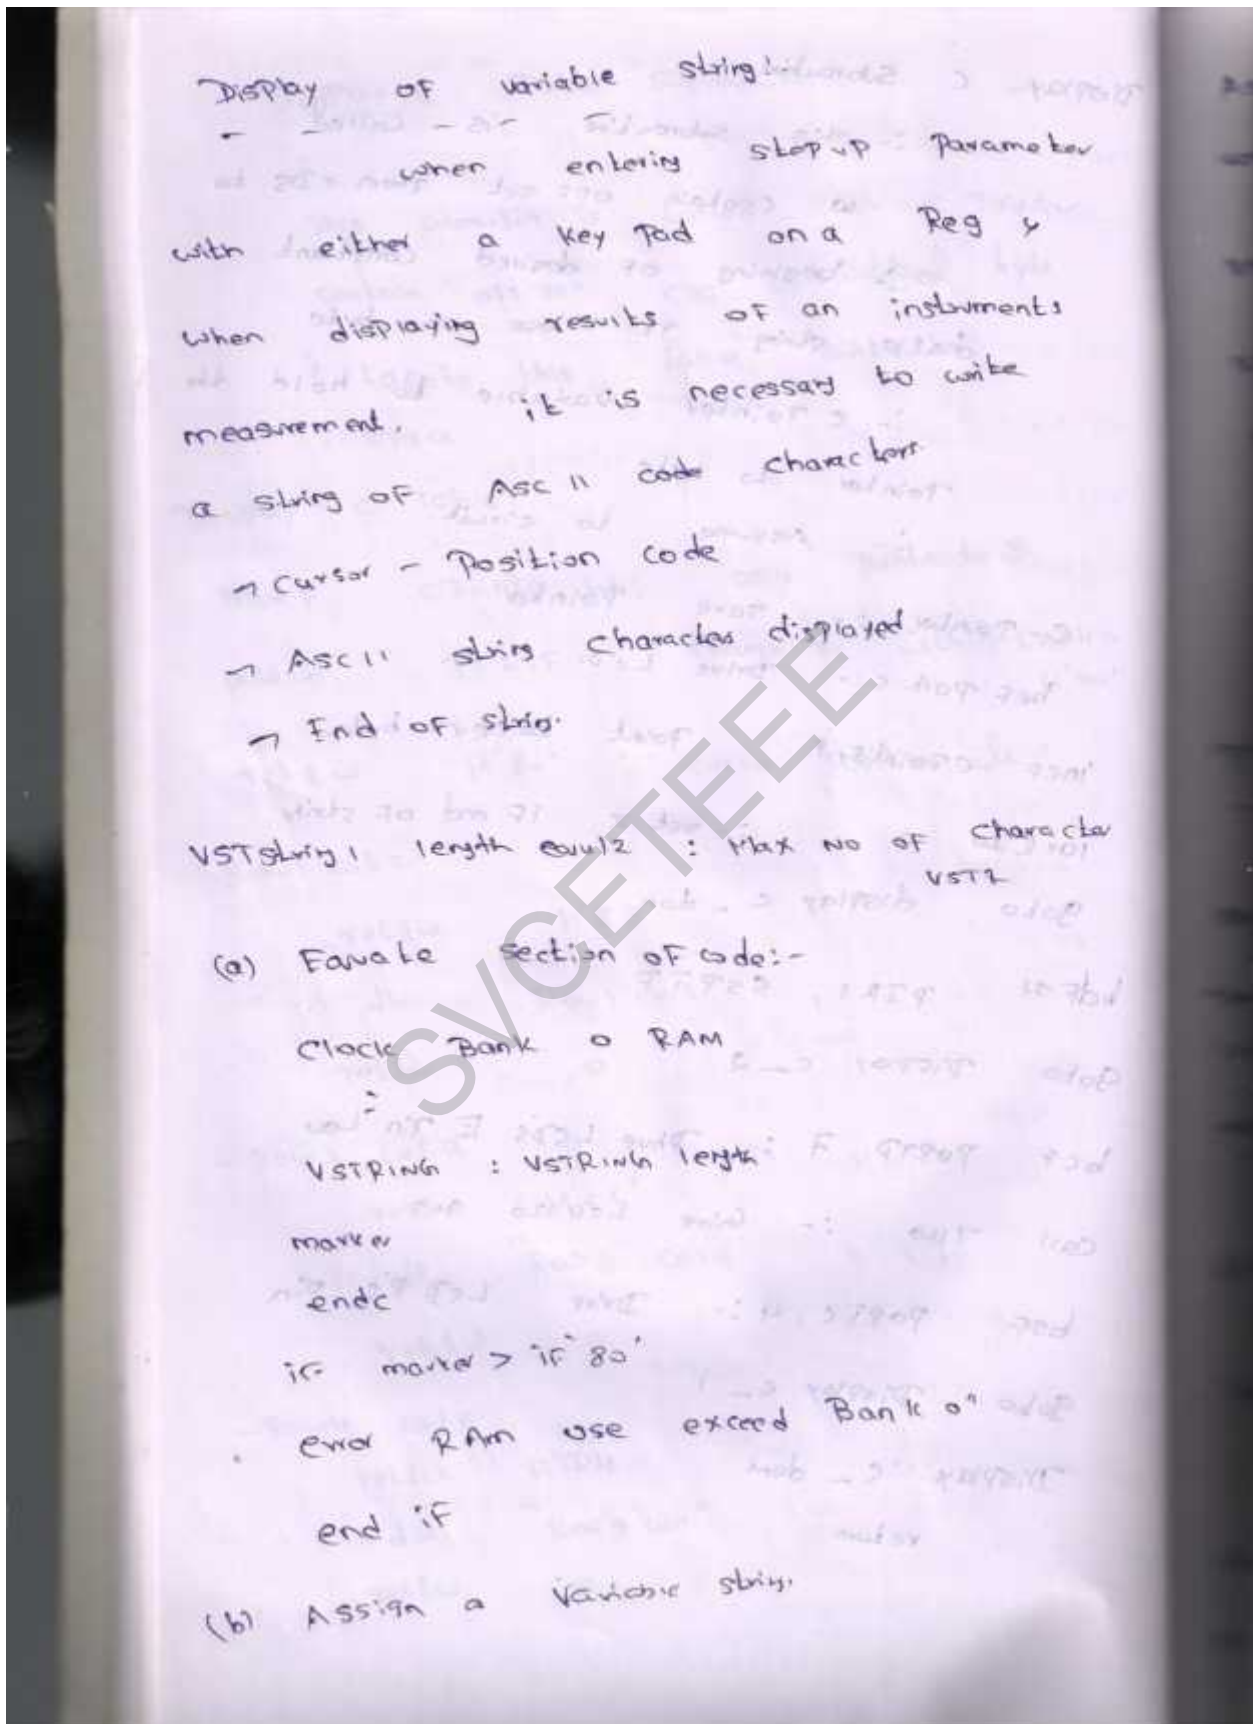 Display of variable string:
when entering step up Parameter
with either a Key Pad on a Reg y
when displaying results of an instuments
measurement. it is necessary to write
a string of Asc 11 code charactors
→ Cursor - Position code
→ Asc 11 string character displayed
→ End of string.
VSTstring 1 length equ12 : Max No of character
VST2
(a) section of code:-
Clock Bank 0 RAM
:
VSTRING : VSTRING length
marker
endc
if marker > if '80'
error RAm use exceed Bank 0"
end if
(b) Assign a Variable string.
SVCETEEE